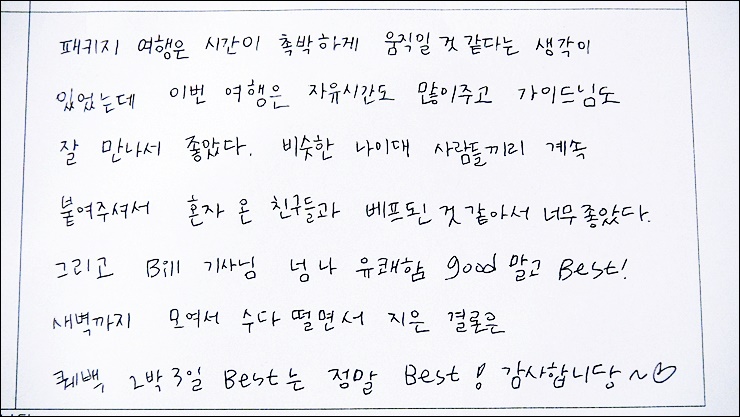 패키지 여행은 시간이 촉박하게 움직일 것 같다는 생각이
있었는데 이번 여행은 자유시간도 많이주고 가이드님도
잘 만나서 좋았다. 비슷한 나이대 사람들끼리 계속
붙여주셔서 혼자 온 친구들과 베프된 것 같아서 너무 좋았다.
그리고 Bill 기사님 넘나 유쾌함 good 말고 Best!
새벽까지 모여서 수다 떨면서 지은 결론은
퀘백 2박 3일 Best는 정말 Best! 감사합니당~♡